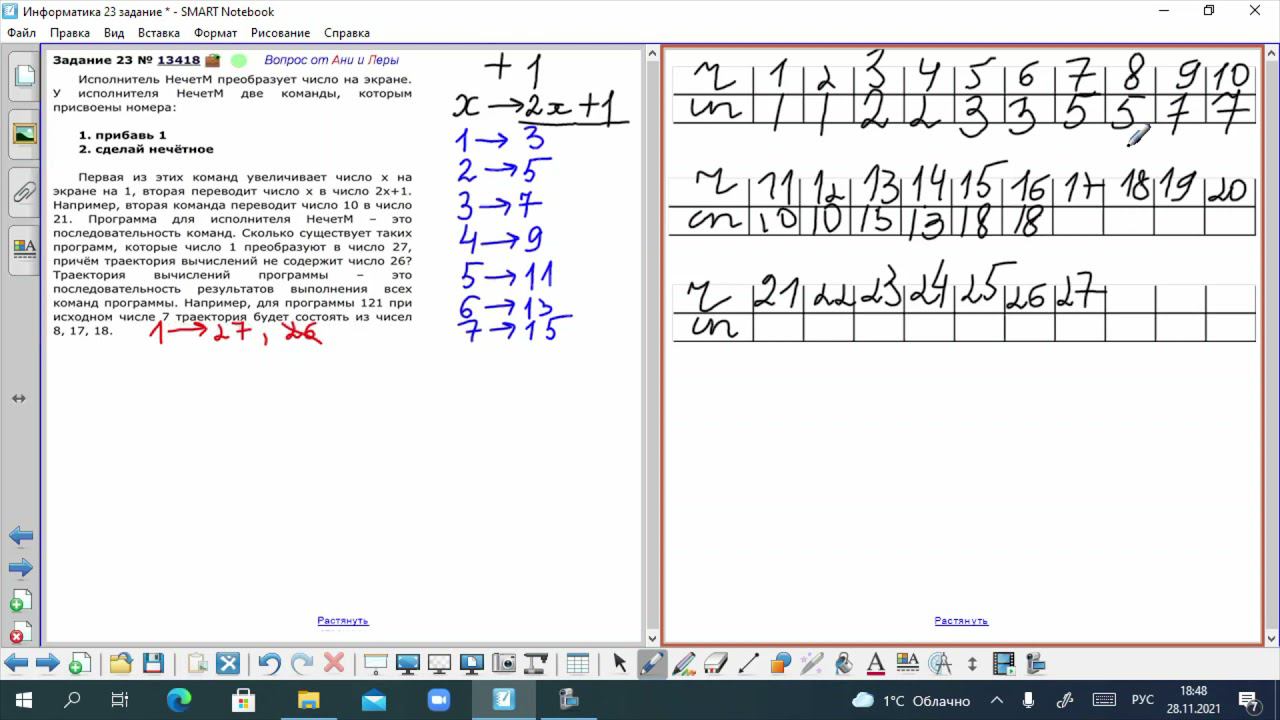 Информатика 23 задание * - SMART Notebook
Файл Правка Вид Вставка Формат Рисование Справка
Задание 23 № 13418 Вопрос от Ани и Леры
Исполнитель НечетМ преобразует число на экране.
У исполнителя НечетМ две команды, которым
присвоены номера:
1. прибавь 1
2. сделай нечётное
Первая из этих команд увеличивает число x на
экране на 1, вторая переводит число x в число 2x+1.
Например, вторая команда переводит число 10 в число
21. Программа для исполнителя НечетМ – это
последовательность команд. Сколько существует таких
программ, которые число 1 преобразуют в число 27,
причём траектория вычислений не содержит число 26?
Траектория вычислений программы – это
последовательность результатов выполнения всех
команд программы. Например, для программы 121 при
исходном числе 7 траектория будет состоять из чисел
8, 17, 18.
1 → 27, 26
+ 1
x → 2x+1
1 → 3
2 → 5
3 → 7
4 → 9
5 → 11
6 → 13
7 → 15
Растянуть
ч 1 2 3 4 5 6 7 8 9 10
сп 1 1 2 2 3 3 5 5 7 7
ч 11 12 13 14 15 16 17 18 19 20
сп 10 10 15 13 18 18
ч 21 22 23 24 25 26 27
сп
Растянуть
1°C Облачно
РУС
18:48
28.11.2021
7